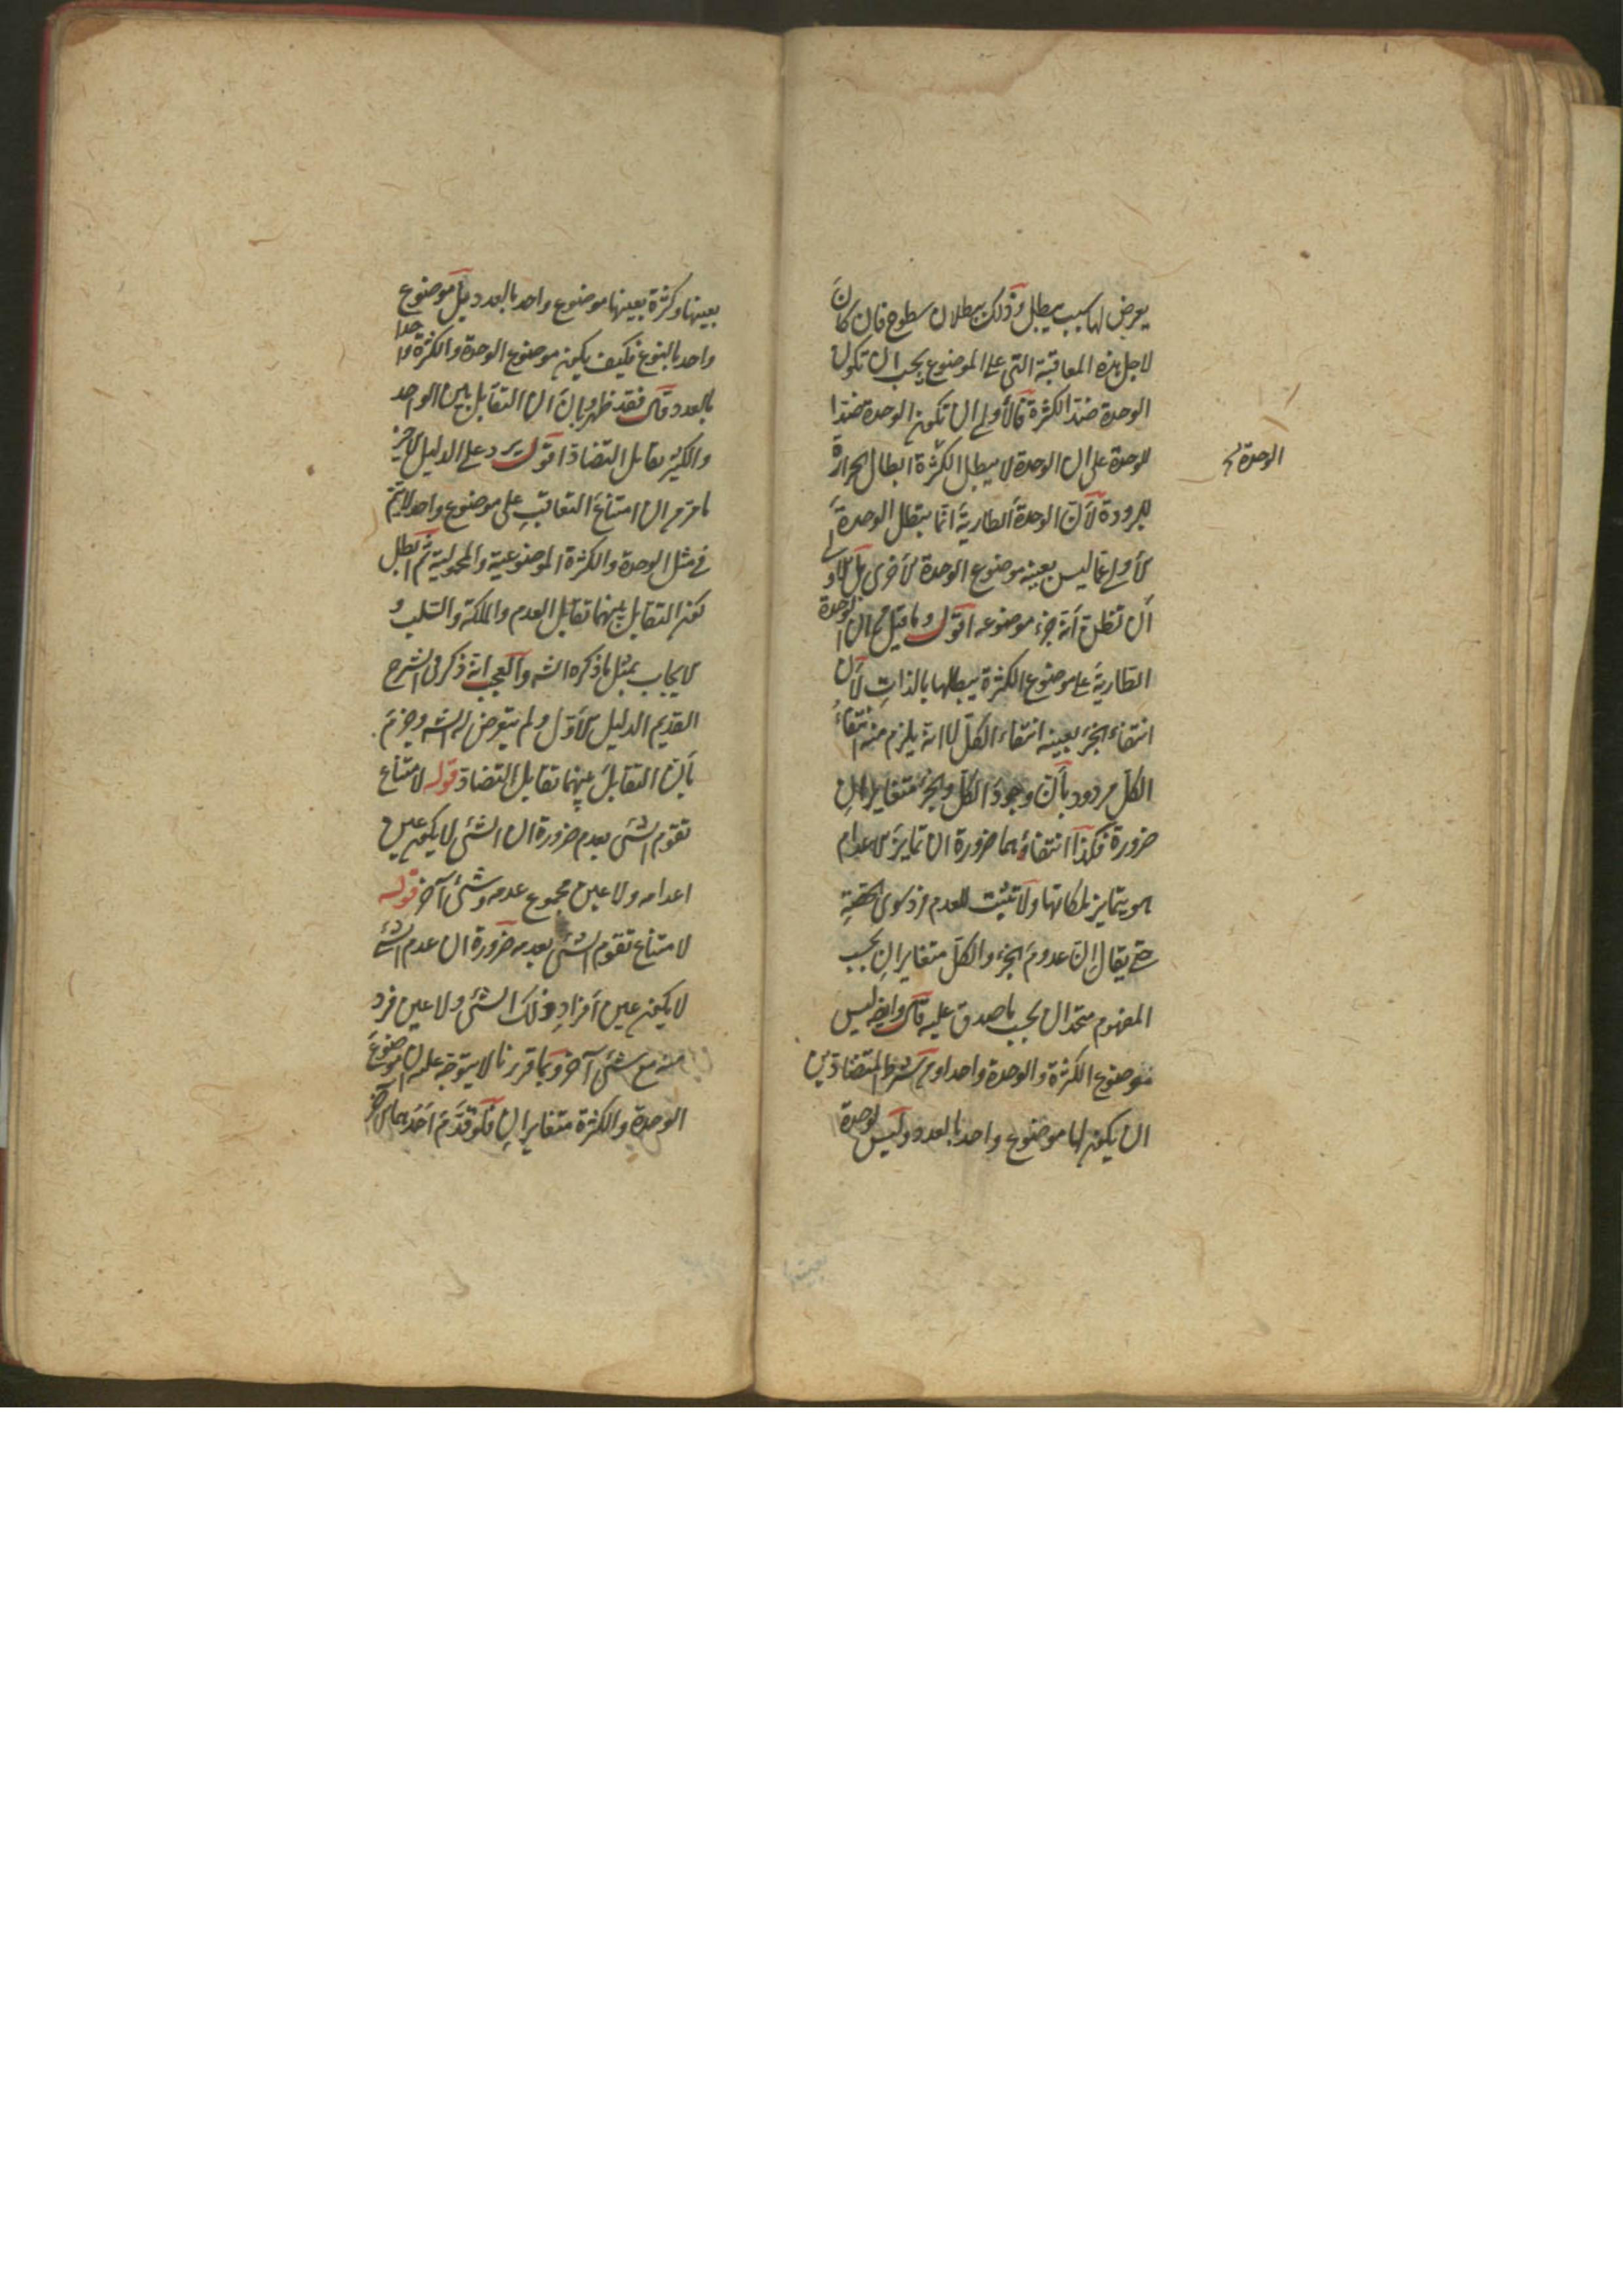 يعرض لها سبب يبطل وذلك ببطلان سطوح فان كان
لاجل هذه المعاقبة التى على الموضوع يجب ان تكون
الوحدة ضد الكثرة فالأولى ان تكون الوحدة ضدا
للوحدة على ان الوحدة لا يبطل الكثرة ابطال الحرارة
الوحدة
للبرودة لأن الوحدة الطارية انما يبطل الوحدة
الأولى عما ليس بعينه موضوع الوحدة الأخرى بل الأولى
أن تظن أنه جزء موضوعه اقول وما قيل ان الوحدة
الطارية على موضوع الكثرة يبطلها بالذات لأن
انتفاء الجزء بعينه انتفاء الكل لا انه يلزم منه انتفاء
الكل مردود بأن وجود الكل والجزء متغايران
ضرورة فكذا انتفاؤهما ضرورة ان تمايز الاعدام
هو بتمايز ملكاتها ولا تثبت للعدم فرد سوى الحصة
حتى يقال ان عدوم الجزء والكل متغايران بحسب
المفهوم متحدان بحسب ما صدق عليه قال وايضا ليس
موضوع الكثرة والوحدة واحدا ومن شرط المتضادين
ان يكون لهما موضوع واحد بالعدد وليس لوحدة
بعينها
بعينها وكثرة بعينها موضوع واحد بالعدد بل موضوع
واحد بالنوع فكيف يكون موضوع الوحدة والكثرة واحدا
بالعدد قال فقد ظهر وبان ان التقابل بين الواحد
والكثير تقابل التضاد اقول يرد على الدليل الاخير
ما مر من ان امتناع التعاقب على موضوع واحد لا يتم
فى مثل الوحدة والكثرة الموضوعية والمحمولية ثم ابطل
كون التقابل بينهما تقابل العدم والملكة والسلب و
الايجاب بمثل ما ذكره الشه والعجب انه ذكر فى الشرح
القديم الدليل الأول ولم يتعرض له الشه وجزم
بأن التقابل بينهما تقابل التضاد قوله لامتناع
تقوم الشئ بعدم ضرورة ان الشئ لا يكون عين
اعدامه ولا عين مجموع عدمه وشئ آخر قوله
لامتناع تقوم الشئ بعدمه ضرورة ان عدم الشئ
لا يكون عين أفراد ذلك الشئ ولا عين فرد
منه مع شئ آخر وبما قررنا لا يتوجه عليه ان موضوع
الوحدة والكثرة متغايران فلو قدم احدهما الآخر